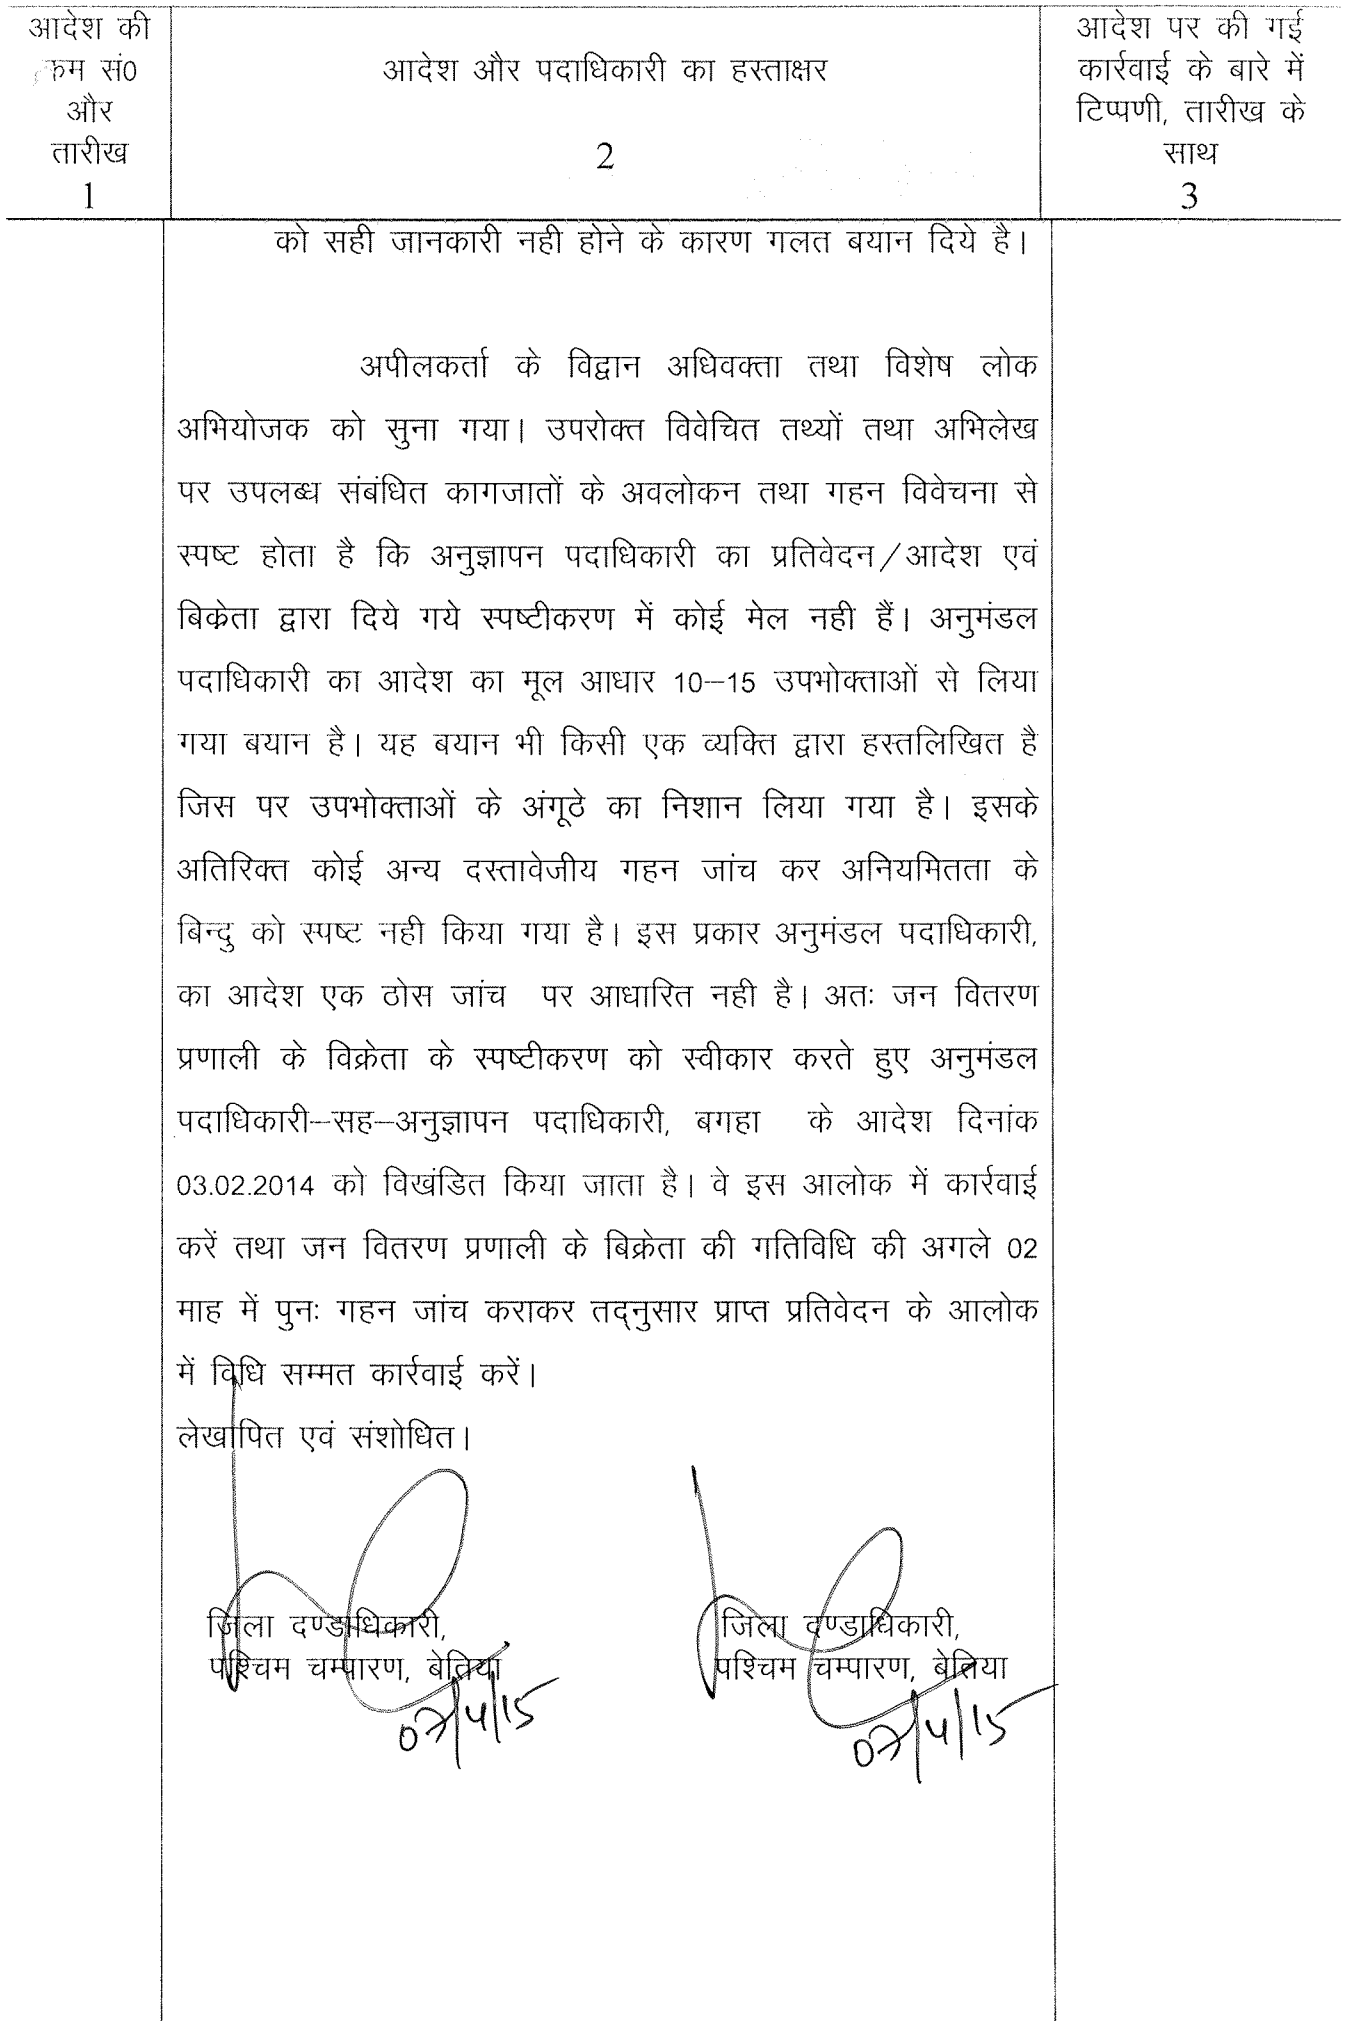 आदेश की
क्रम सं0
और
तारीख
1
आदेश और पदाधिकारी का हस्ताक्षर
2
आदेश पर की गई
कार्रवाई के बारे में
टिप्पणी, तारीख के
साथ
3
को सही जानकारी नही होने के कारण गलत बयान दिये है।
अपीलकर्ता के विद्वान अधिवक्ता तथा विशेष लोक
अभियोजक को सुना गया। उपरोक्त विवेचित तथ्यों तथा अभिलेख
पर उपलब्ध संबंधित कागजातों के अवलोकन तथा गहन विवेचना से
स्पष्ट होता है कि अनुज्ञापन पदाधिकारी का प्रतिवेदन/आदेश एवं
बिक्रेता द्वारा दिये गये स्पष्टीकरण में कोई मेल नही हैं। अनुमंडल
पदाधिकारी का आदेश का मूल आधार 10–15 उपभोक्ताओं से लिया
गया बयान है। यह बयान भी किसी एक व्यक्ति द्वारा हस्तलिखित है
जिस पर उपभोक्ताओं के अंगूठे का निशान लिया गया है। इसके
अतिरिक्त कोई अन्य दस्तावेजीय गहन जांच कर अनियमितता के
बिन्दु को स्पष्ट नही किया गया है। इस प्रकार अनुमंडल पदाधिकारी,
का आदेश एक ठोस जांच पर आधारित नही है। अतः जन वितरण
प्रणाली के विक्रेता के स्पष्टीकरण को स्वीकार करते हुए अनुमंडल
पदाधिकारी–सह–अनुज्ञापन पदाधिकारी, बगहा के आदेश दिनांक
03.02.2014 को विखंडित किया जाता है। वे इस आलोक में कार्रवाई
करें तथा जन वितरण प्रणाली के बिक्रेता की गतिविधि की अगले 02
माह में पुनः गहन जांच कराकर तद्नुसार प्राप्त प्रतिवेदन के आलोक
में विधि सम्मत कार्रवाई करें।
लेखापित एवं संशोधित।
जिला दण्डाधिकारी,
पश्चिम चम्पारण, बेतिया
07/4/15
जिला दण्डाधिकारी,
पश्चिम चम्पारण, बेतिया
07/4/15